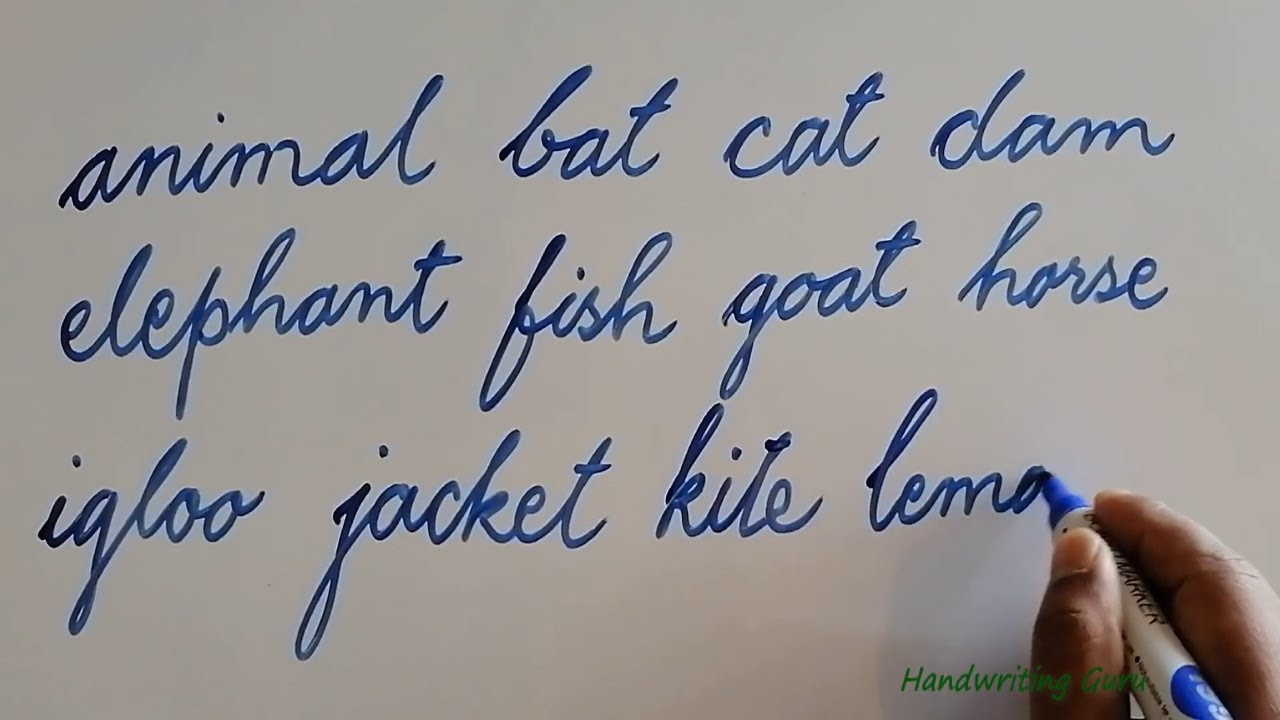 animal bat cat dam
elephant fish goat horse
igloo jacket kite lemo
MARKER
Handwriting Guru